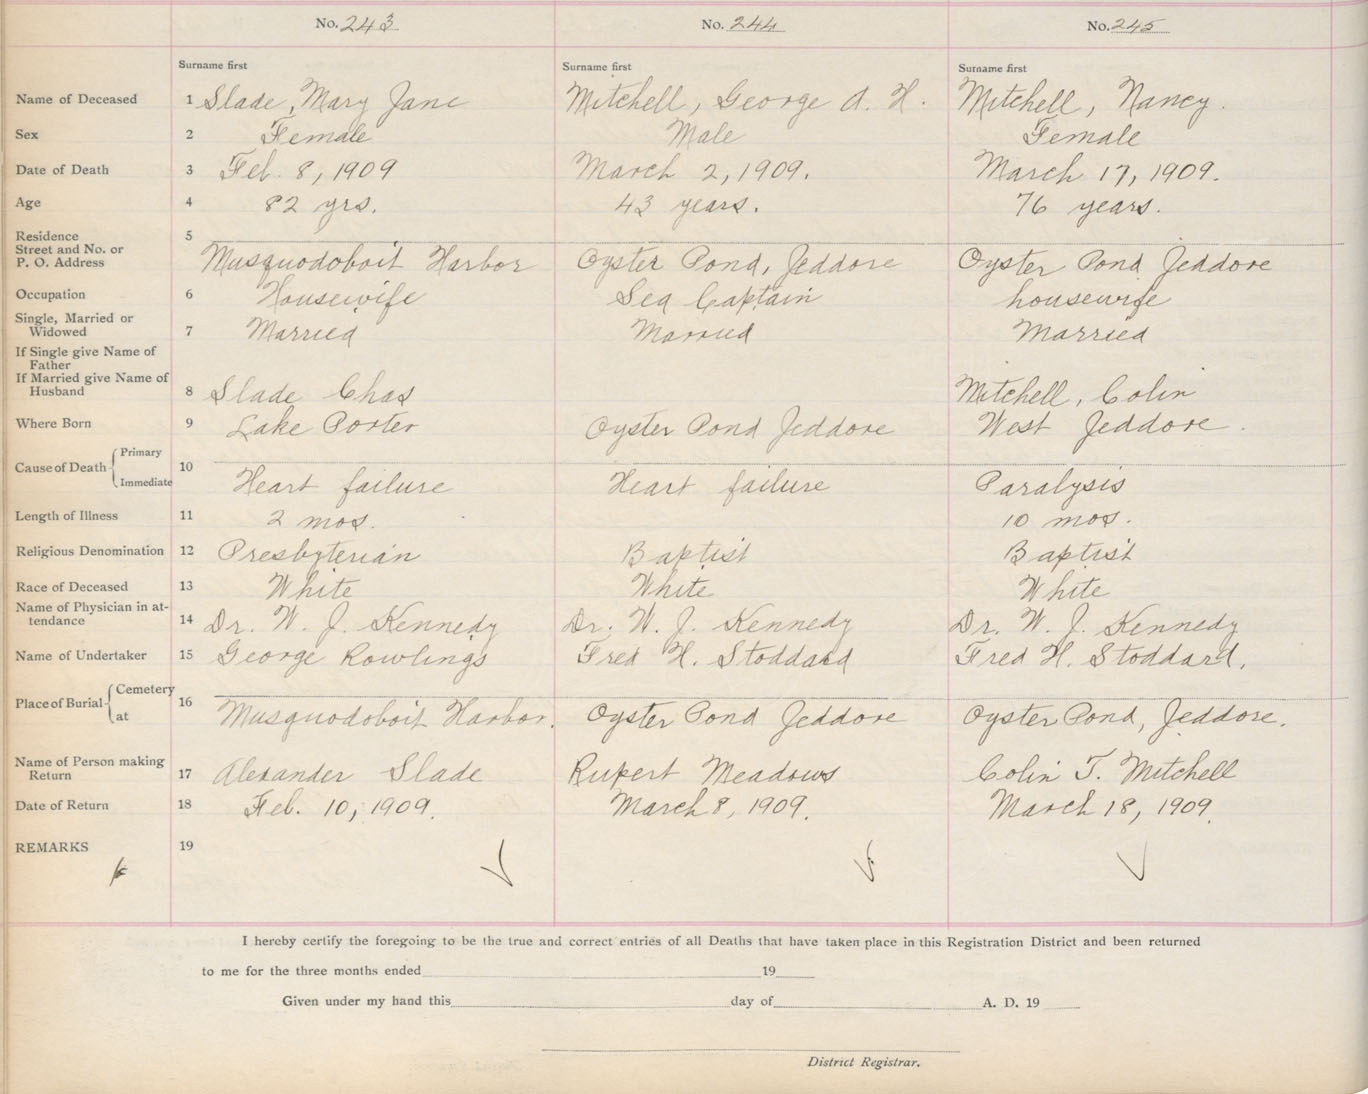 No. 243 No. 244 No. 245
Surname first Surname first Surname first
Name of Deceased 1 Slade, Mary Jane Mitchell, George A. H. Mitchell, Nancy.
Sex 2 Female Male Female
Date of Death 3 Feb. 8, 1909 March 2, 1909. March 17, 1909.
Age 4 82 yrs. 43 years. 76 years.
Residence 5
Street and No. or
P. O. Address Musquodoboit Harbor Oyster Pond, Jeddore Oyster Pond Jeddore
Occupation 6 Housewife Sea Captain housewife
Single, Married or
Widowed 7 Married Married Married
If Single give Name of
Father
If Married give Name of
Husband 8 Slade Chas Mitchell, Colin
Where Born 9 Lake Porter Oyster Pond Jeddore West Jeddore.
Cause of Death Primary
10
Immediate Heart failure Heart failure Paralysis
Length of Illness 11 2 mos. 10 mos.
Religious Denomination 12 Presbyterian Baptist Baptist
Race of Deceased 13 White White White
Name of Physician in at-
tendance 14 Dr. W. J. Kennedy Dr. W. J. Kennedy Dr. W. J. Kennedy
Name of Undertaker 15 George Rowlings Fred H. Stoddard Fred H. Stoddard.
Place of Burial Cemetery
16
at Musquodoboit Harbor. Oyster Pond Jeddore Oyster Pond, Jeddore.
Name of Person making
Return 17 Alexander Slade Rupert Meadows Colin T. Mitchell
Date of Return 18 Feb. 10, 1909. March 8, 1909. March 18, 1909.
REMARKS 19
I hereby certify the foregoing to be the true and correct entries of all Deaths that have taken place in this Registration District and been returned
to me for the three months ended 19
Given under my hand this day of A. D. 19
District Registrar.